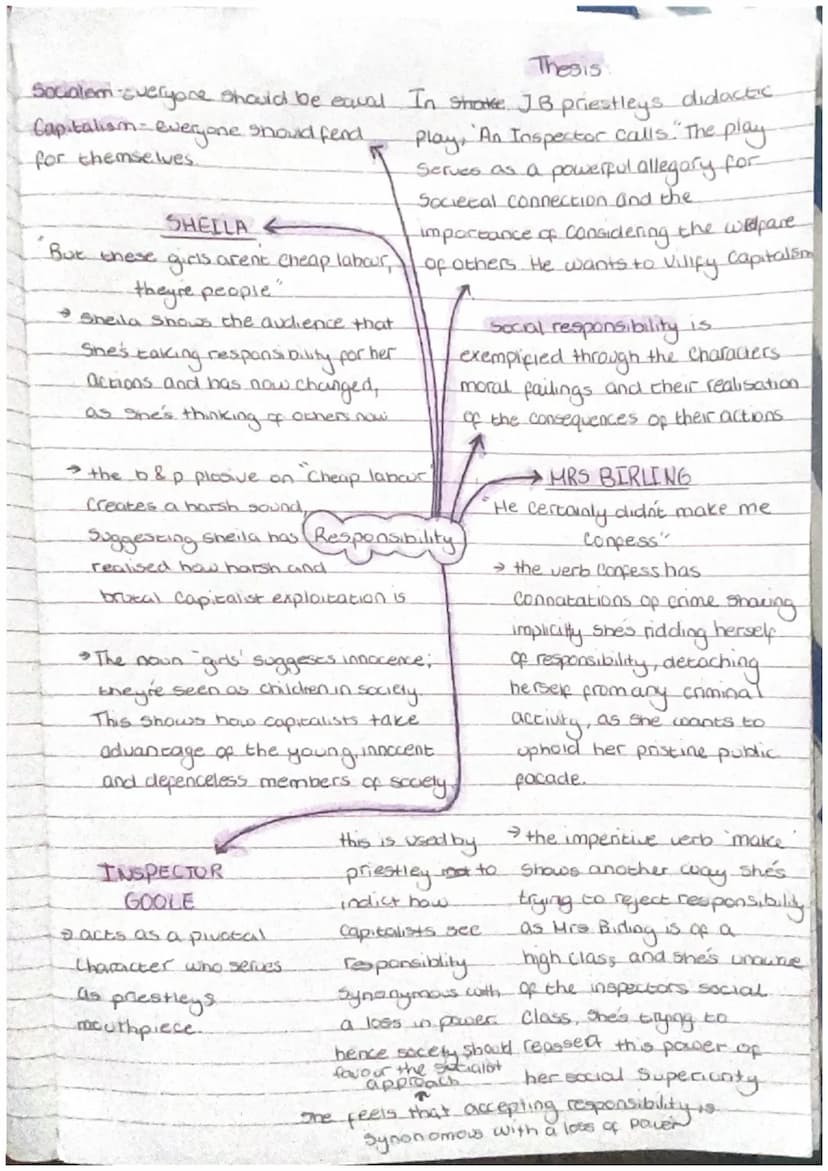 Thesis
Socialism - everyone should be equal
Capitalism - everyone should fend
for themselves.
In JB priestleys didactic
play, "An Inspector calls." The play
serves as a powerful allegory for
societal connection and the
importance of considering the welfare
of others. He wants to vilify capitalism
SHEILA
"But these girls arent cheap labour,
they're people"
→ sheila shows the audience that
she's taking responsibility for her
actions and has now changed,
as she's thinking of others now
→ the b & p plosive on "cheap labour"
creates a harsh sound,
suggesting sheila has
realised how harsh and
brutal capitalist exploitation is
→ The noun "girls" suggests innocence;
they're seen as children in society.
This shows how capitalists take
advantage of the young, innocent
and defenceless members of society
Social responsibility is
exemplified through the characters
moral failings and their realisation
of the consequences of their actions
Responsibility
MRS BIRLING
"He certainly didn't make me
confess"
→ the verb confess has
connatations of crime sharing
implicitly she's ridding herself
of responsibility, detaching
herself from any criminal
activity, as she wants to
uphold her pristine public
facade.
→ the imperitive verb 'make'
shows another way she's
trying to reject responsibility
as Mrs Birling is of a
high class, and she's unaware
of the inspectors social
class, she's trying to
reassert this power of
her social superiority
she feels that accepting responsibility is
synonomous with a loss of power
this is used by
priestley to
indict how
capitalists see
responsiblity
synonymous with
a loss in power.
hence society should
favour the socialist
approach
INSPECTOR
GOOLE
→ acts as a pivotal
character who serves
as priestleys
mouthpiece.